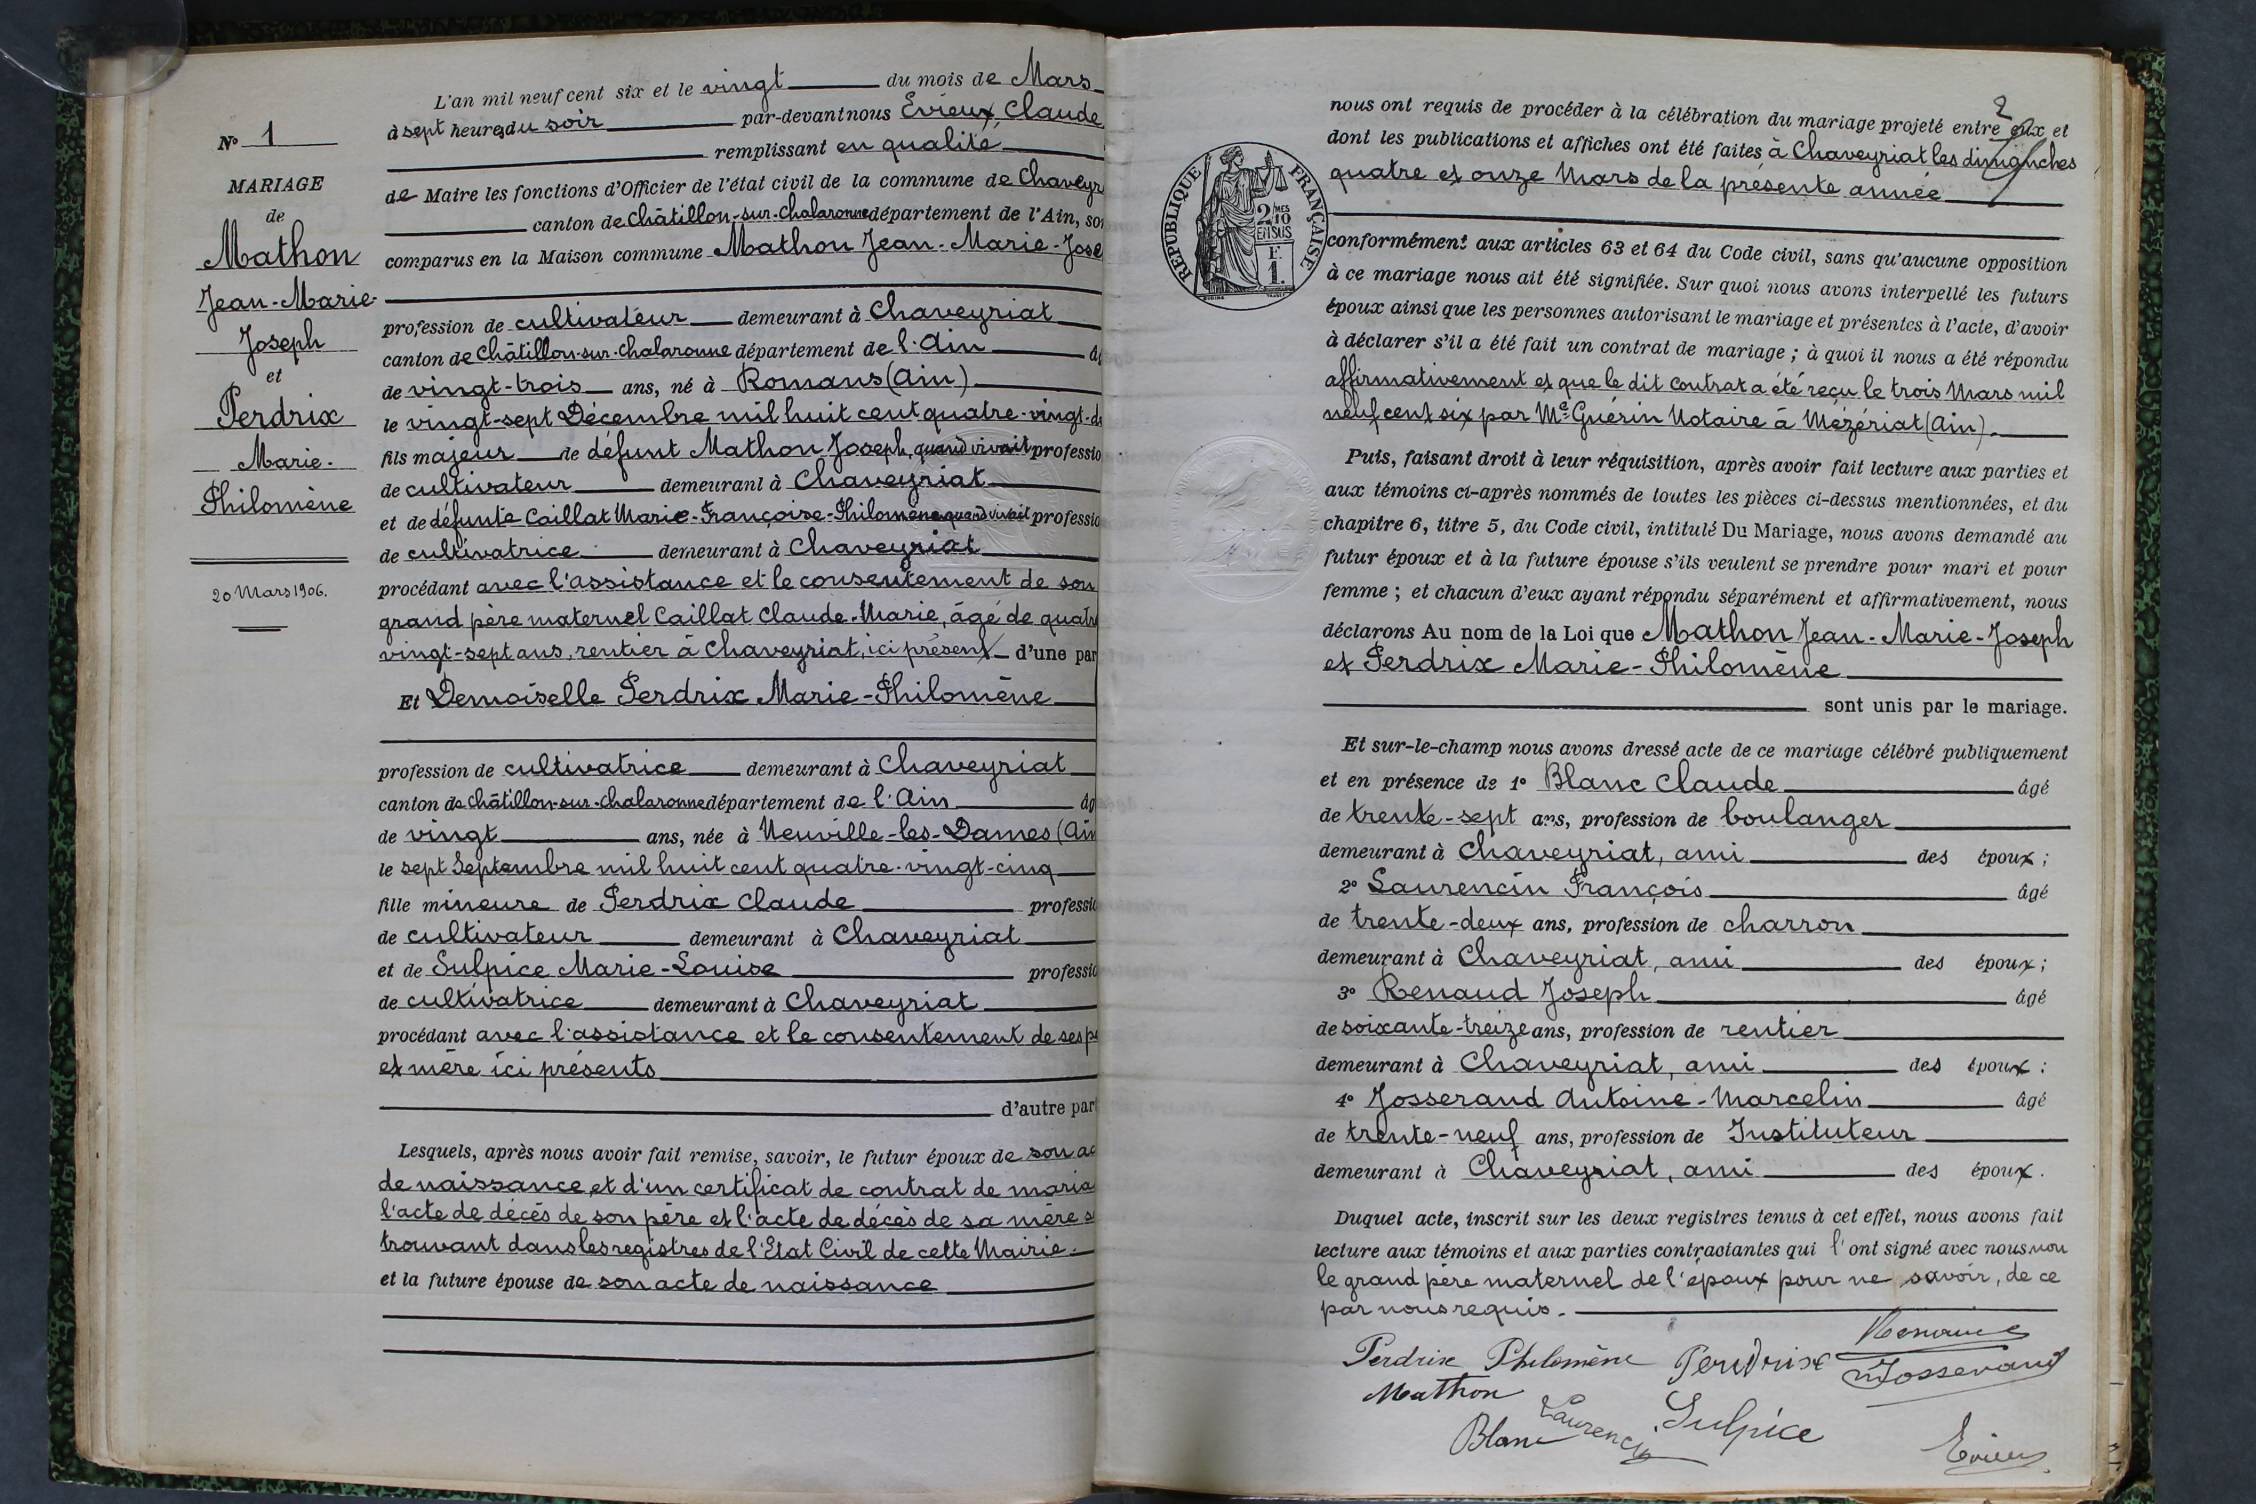 N° 1
MARIAGE
de
Mathon
Jean-Marie-
Joseph
et
Perdrix
Marie-
Philomène
20 Mars 1906.
L'an mil neuf cent six et le vingt du mois de Mars
à sept heures du soir par-devant nous Evieux, Claude
remplissant en qualité
de Maire les fonctions d'Officier de l'état civil de la commune de Chaveyr
canton de Châtillon-sur-Chalaronne département de l'Ain, so
comparus en la Maison commune Mathon Jean-Marie-Jose
profession de cultivateur demeurant à Chaveyriat
canton de Châtillon-sur-Chalaronne département de l'Ain â
de vingt-trois ans, né à Romans (Ain)
le vingt-sept Décembre mil huit cent quatre-vingt-d
fils majeur de défunt Mathon Joseph, quand vivait professio
de cultivateur demeurant à Chaveyriat
et de défunte Caillat Marie-Françoise-Philomène quand vivait professio
de cultivatrice demeurant à Chaveyriat
procédant avec l'assistance et le consentement de son
grand père maternel Caillat Claude-Marie, âgé de quatr
vingt-sept ans, rentier à Chaveyriat, ici présent d'une par
Et Demoiselle Perdrix Marie-Philomène
profession de cultivatrice demeurant à Chaveyriat
canton de Châtillon-sur-Chalaronne département de l'Ain âg
de vingt ans, née à Neuville-les-Dames (Ain
le sept Septembre mil huit cent quatre-vingt-cinq
fille mineure de Perdrix Claude professio
de cultivateur demeurant à Chaveyriat
et de Sulpice Marie-Louise professio
de cultivatrice demeurant à Chaveyriat
procédant avec l'assistance et le consentement de ses pè
et mère ici présents
d'autre part
Lesquels, après nous avoir fait remise, savoir, le futur époux de son ac
de naissance et d'un certificat de contrat de maria
l'acte de décès de son père et l'acte de décès de sa mère s
trouvant dans les registres de l'Etat Civil de cette Mairie.
et la future épouse de son acte de naissance
2
nous ont requis de procéder à la célébration du mariage projeté entre eux et
dont les publications et affiches ont été faites à Chaveyriat les dimanches
quatre et onze Mars de la présente année
REPUBLIQUE FRANÇAISE
2/10 MES
EN SUS
F.
1.
conformément aux articles 63 et 64 du Code civil, sans qu'aucune opposition
à ce mariage nous ait été signifiée. Sur quoi nous avons interpellé les futurs
époux ainsi que les personnes autorisant le mariage et présentes à l'acte, d'avoir
à déclarer s'il a été fait un contrat de mariage ; à quoi il nous a été répondu
affirmativement et que le dit contrat a été reçu le trois Mars mil
neuf cent six par Me Guérin Notaire à Mézériat (Ain).
Puis, faisant droit à leur réquisition, après avoir fait lecture aux parties et
aux témoins ci-après nommés de toutes les pièces ci-dessus mentionnées, et du
chapitre 6, titre 5, du Code civil, intitulé Du Mariage, nous avons demandé au
futur époux et à la future épouse s'ils veulent se prendre pour mari et pour
femme ; et chacun d'eux ayant répondu séparément et affirmativement, nous
déclarons Au nom de la Loi que Mathon Jean-Marie-Joseph
et Perdrix Marie-Philomène
sont unis par le mariage.
Et sur-le-champ nous avons dressé acte de ce mariage célébré publiquement
et en présence de 1° Blanc Claude âgé
de trente-sept ans, profession de boulanger
demeurant à Chaveyriat, ami des époux ;
2° Laurencin François âgé
de trente-deux ans, profession de charron
demeurant à Chaveyriat, ami des époux ;
3° Renaud Joseph âgé
de soixante-treize ans, profession de rentier
demeurant à Chaveyriat, ami des époux ;
4° Josserand Antoine-Marcelin âgé
de trente-neuf ans, profession de Instituteur
demeurant à Chaveyriat, ami des époux.
Duquel acte, inscrit sur les deux registres tenus à cet effet, nous avons fait
lecture aux témoins et aux parties contractantes qui l'ont signé avec nous non
le grand père maternel de l'époux pour ne savoir, de ce
par nous requis.
Perdrix Philomène Perdrix Renaud
Mathon Josserand
Blanc Laurencin Sulpice
Evieux